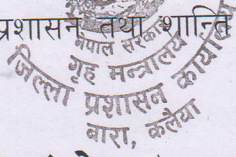 प्रशासन तथा शान्ति
नेपाल सरकार
गृह मन्त्रालय
जिल्ला प्रशासन कार्याल
बारा, कलैया